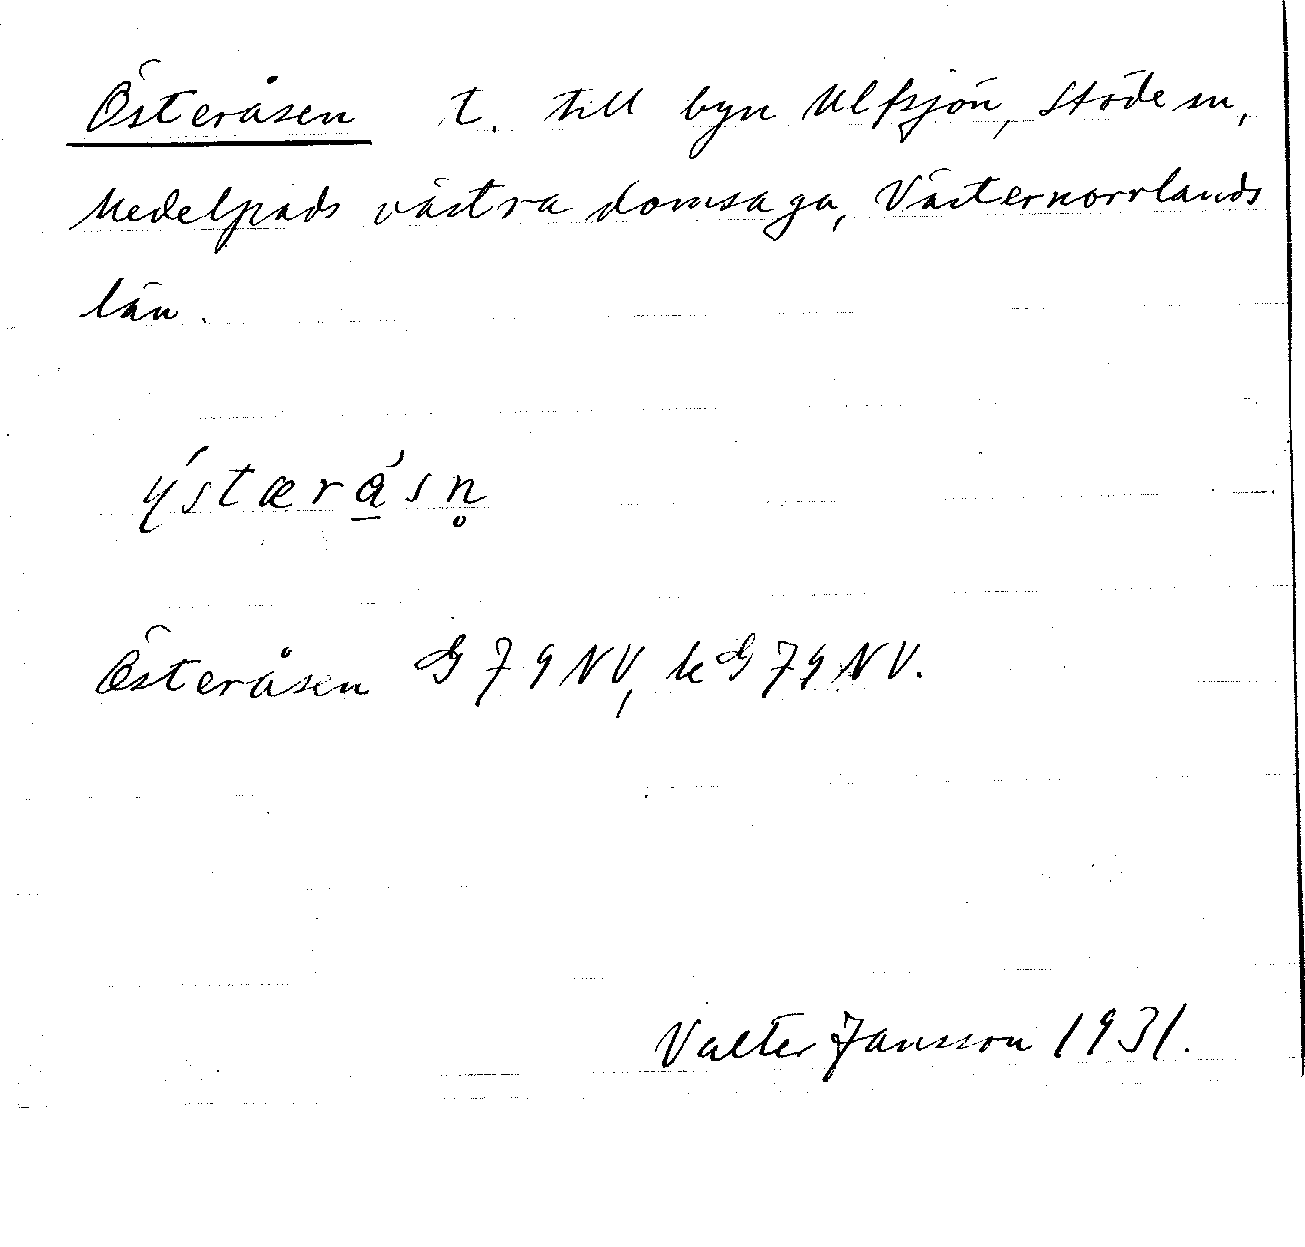 Österåsen t. till byn Ulfsjön, Stöde sn,
Medelpads västra domsaga, Västernorrlands
län.
ýstærǻ̲sn̥
Österåsen G 79 NV, kG 79 NV.
Valter Jansson 1931.